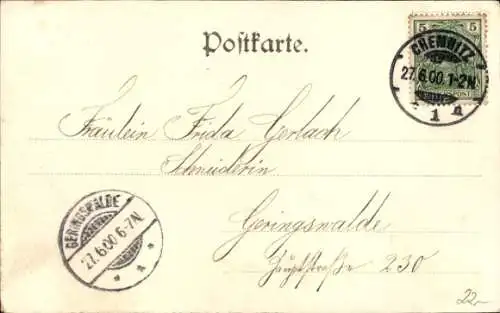 5 5
CHEMNITZ
27.6.00.1-2N.
1 d
Postkarte.
Fräulein Frida Gerlach
Schneiderin
Geringswalde
Hauptstraße 230
GERINGSWALDE
27.6.00.6-7N.
22-